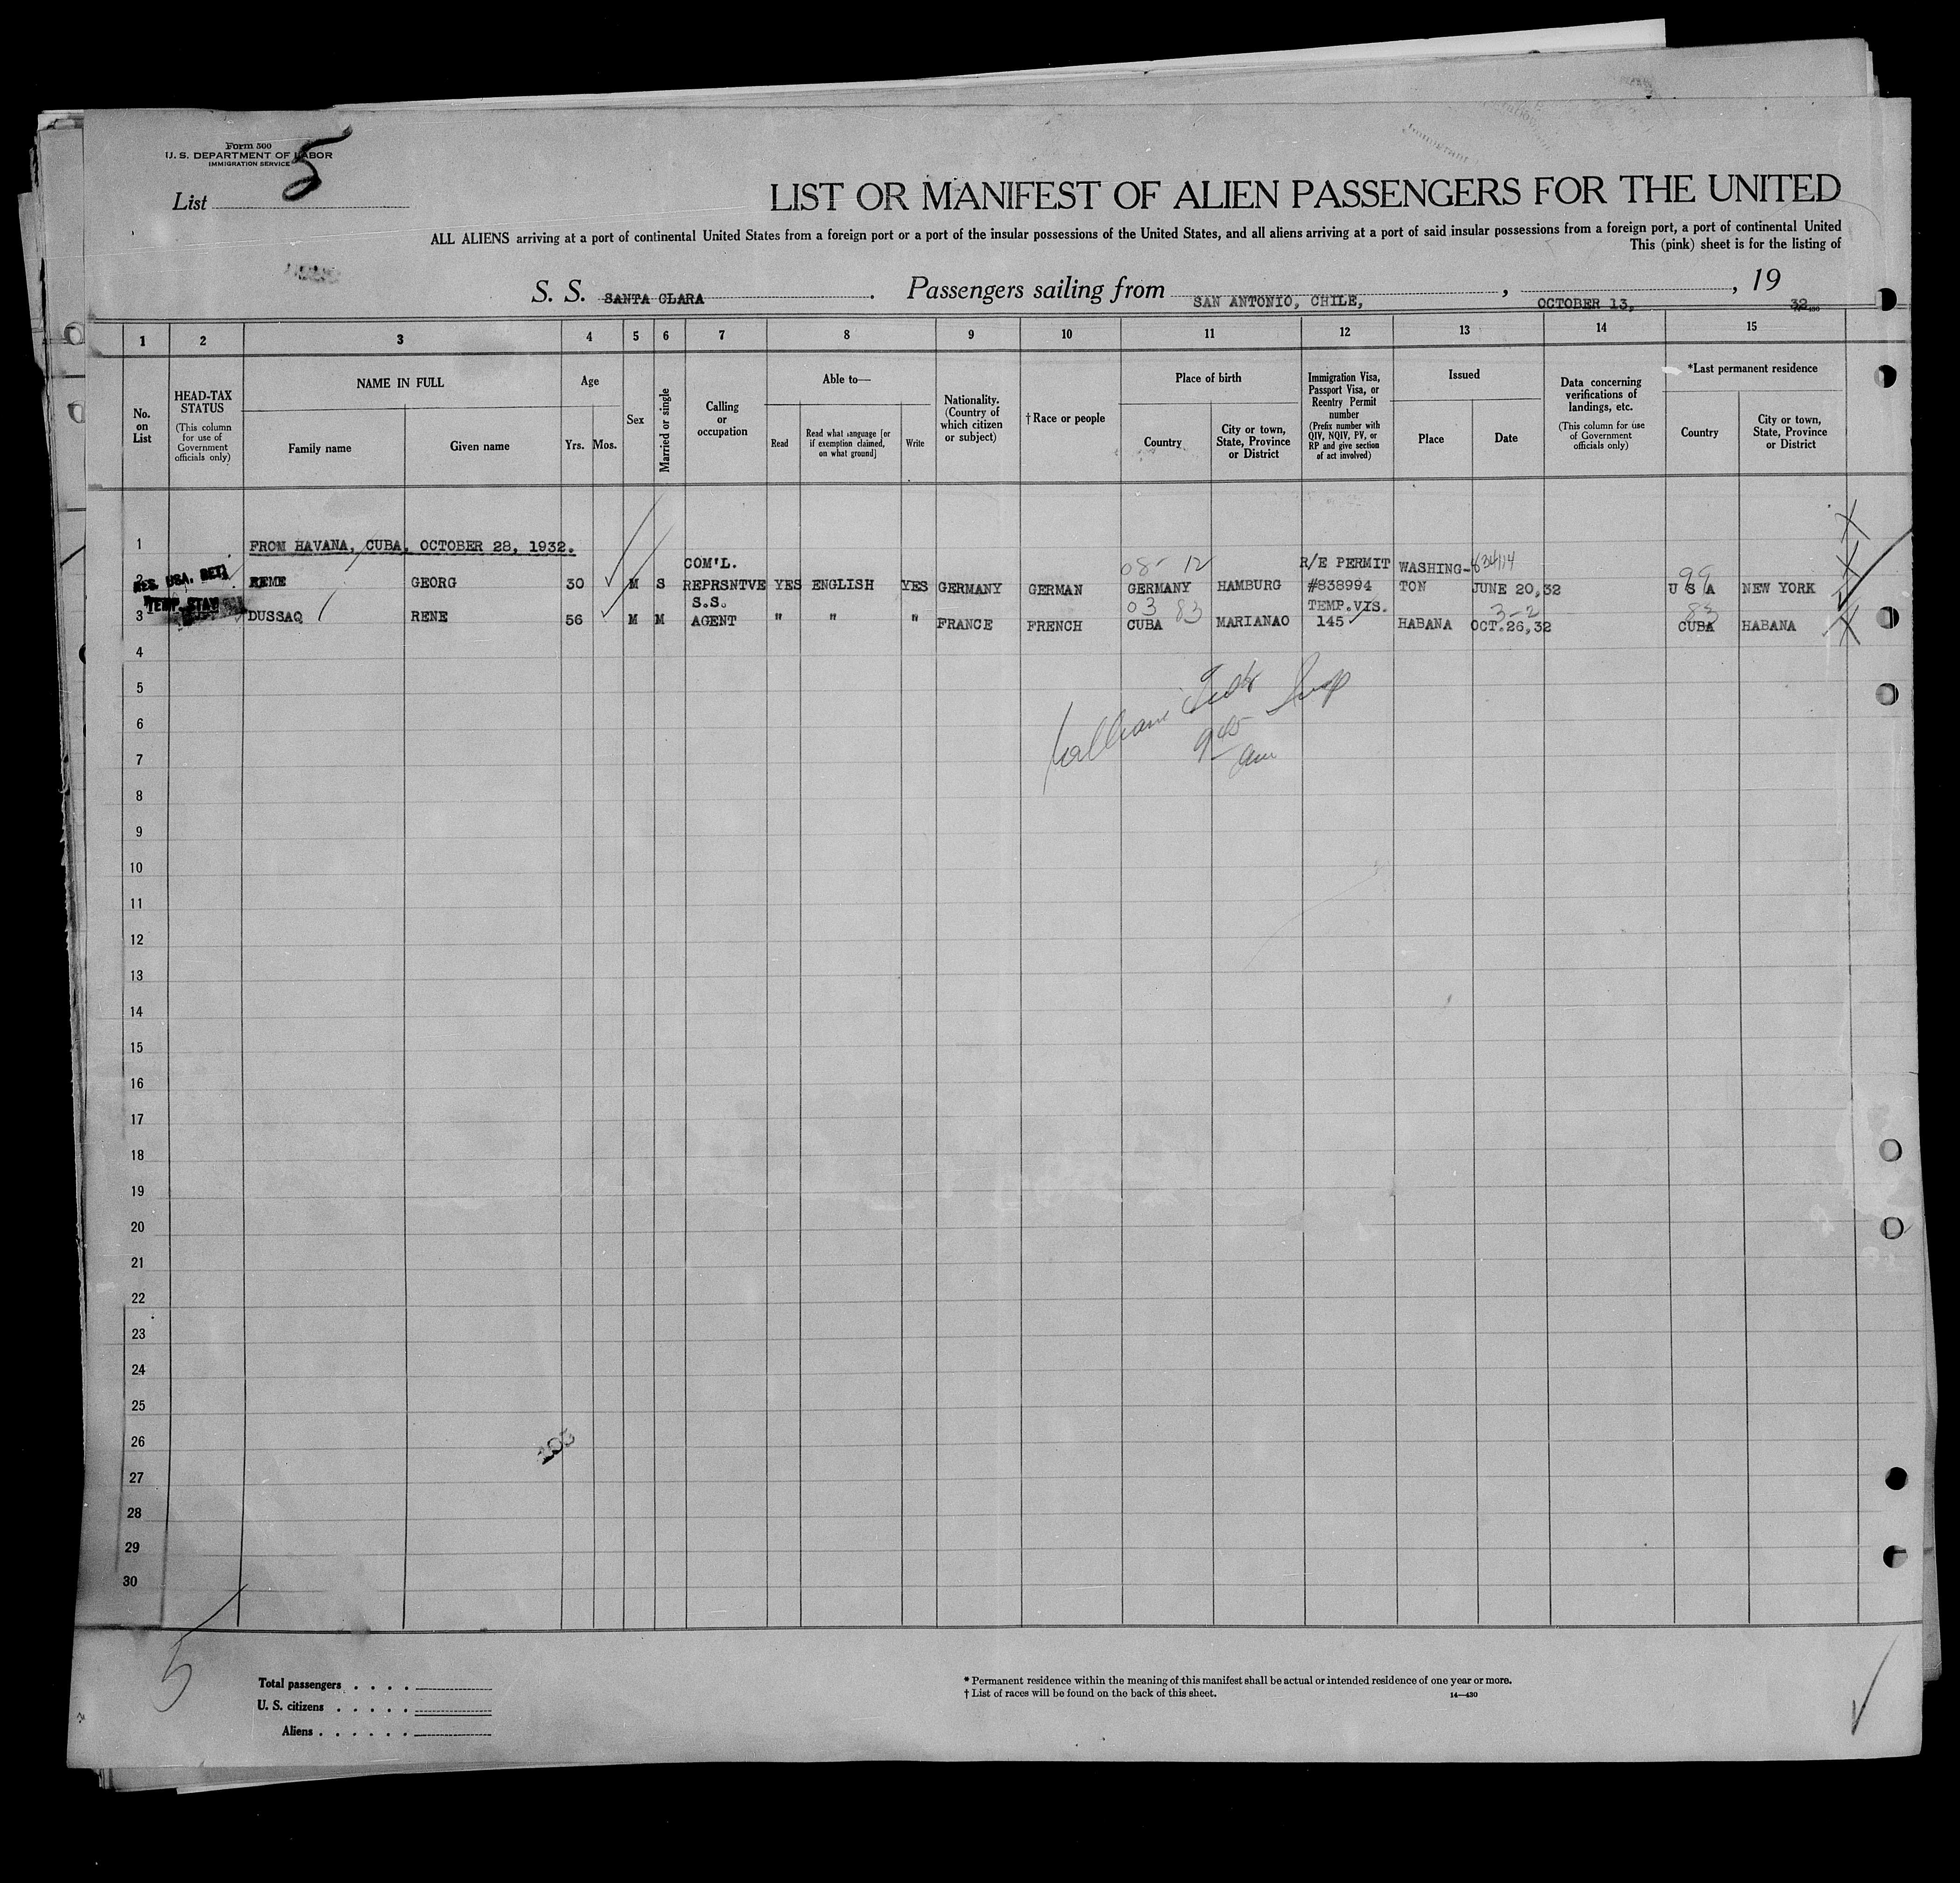 Form 500
U. S. DEPARTMENT OF LABOR
IMMIGRATION SERVICE
List 5
LIST OR MANIFEST OF ALIEN PASSENGERS FOR THE UNITED
ALL ALIENS arriving at a port of continental United States from a foreign port or a port of the insular possessions of the United States, and all aliens arriving at a port of said insular possessions from a foreign port, a port of continental United
This (pink) sheet is for the listing of
S. S. SANTA CLARA. Passengers sailing from SAN ANTONIO, CHILE, , OCTOBER 13, , 19 32
1 2 3 4 5 6 7 8 9 10 11 12 13 14 15
No. on List
HEAD-TAX STATUS (This column for use of Government officials only)
NAME IN FULL
Family name
Given name
Age
Yrs. Mos.
Sex
Married or single
Calling or occupation
Able to—
Read
Read what language [or if exemption claimed, on what ground]
Write
Nationality. (Country of which citizen or subject)
† Race or people
Place of birth
Country
City or town, State, Province or District
Immigration Visa, Passport Visa, or Reentry Permit number (Prefix number with QIV, NQIV, PV, or RP and give section of act involved)
Issued
Place
Date
Data concerning verifications of landings, etc. (This column for use of Government officials only)
*Last permanent residence
Country
City or town, State, Province or District
1 FROM HAVANA, CUBA, OCTOBER 28, 1932.
COM'L. 08- 12 R/E PERMIT WASHING- 99
2 REME GEORG 30 M S REPRSNTVE YES ENGLISH YES GERMANY GERMAN GERMANY HAMBURG #838994 TON JUNE 20,32 U S A NEW YORK
TEMP. STAY S.S. 03 83 TEMP.VIS. 3-2 83
3 DUSSAQ RENE 56 M M AGENT " " " FRANCE FRENCH CUBA MARIANAO 145 HABANA OCT.26,32 CUBA HABANA
4
5
6
7
9 45
am
8
9
10
11
12
13
14
15
16
17
18
19
20
21
22
23
24
25
26
27
28
29
30
5
Total passengers
U. S. citizens
Aliens
* Permanent residence within the meaning of this manifest shall be actual or intended residence of one year or more.
† List of races will be found on the back of this sheet. 14—430